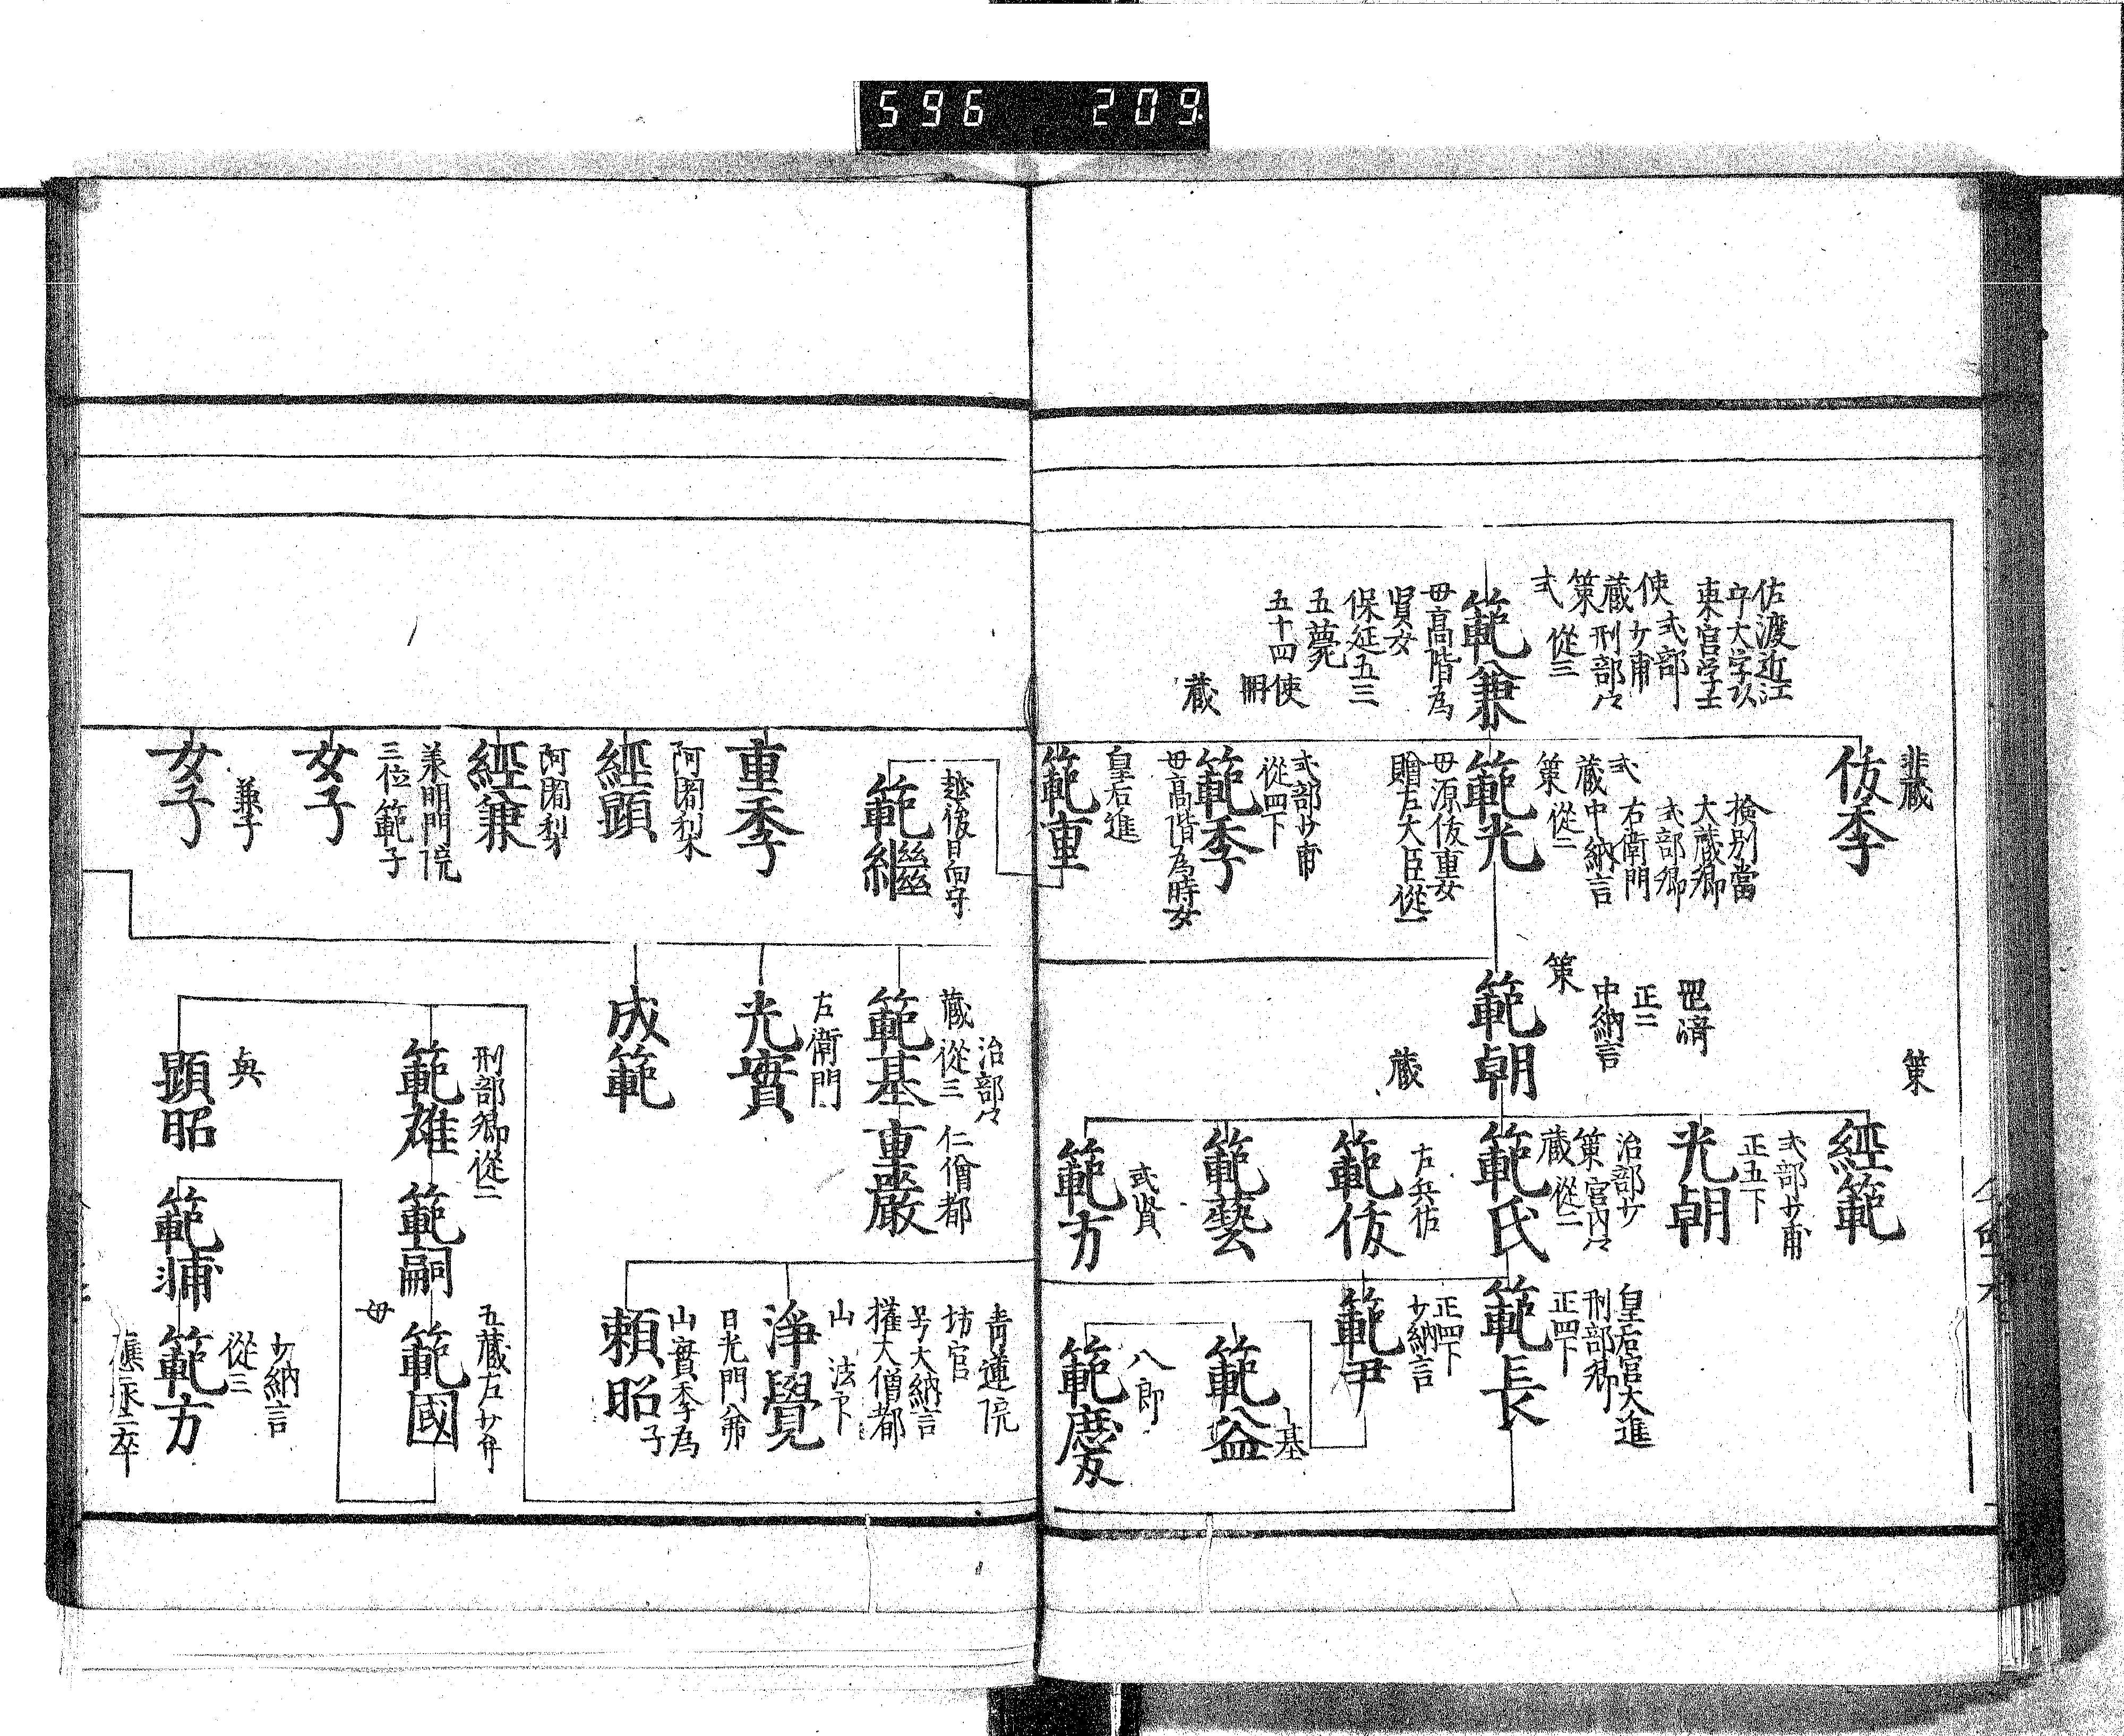 596 209
佐渡近江
守大学以
東宮学士
使式部
蔵少甫
策刑部々
式従三
範兼
母高階為
賢女
保延五三
五薨
五十四
非蔵
佽季
検別當
大蔵卿
式部卿
式右衛門
蔵中納言
策従二
範光
母源佽重女
贈左大臣従一
使
冊
蔵
式部少甫
従四下
範季
母高階為時女
皇后進
範重
正二
中納言
策
範朝
策
經範
式部少甫
正五下
光朝
治部少
策宮内々
蔵従二
範氏
蔵
左兵佐
範佽
範藝
式賢
範方
皇后宮大進
刑部卿
正四下
範長
正四下
少納言
範尹
基
範益
八郎
範慶
越後日向守
範繼
重季
阿闍梨
經顕
阿闍梨
經兼
美明門院
三位範子
女子
兼子
女子
治部々
蔵従三
範基
仁僧都
重嚴
左衛門
光實
成範
青蓮院
坊官
号大納言
権大僧都
山法下
淨覺
日光門弟
山實季為
子
頼昭
刑部卿従二
範雄
範嗣
五蔵左少弁
範國
母
与
顕昭
範浦
少納言
従三
範方